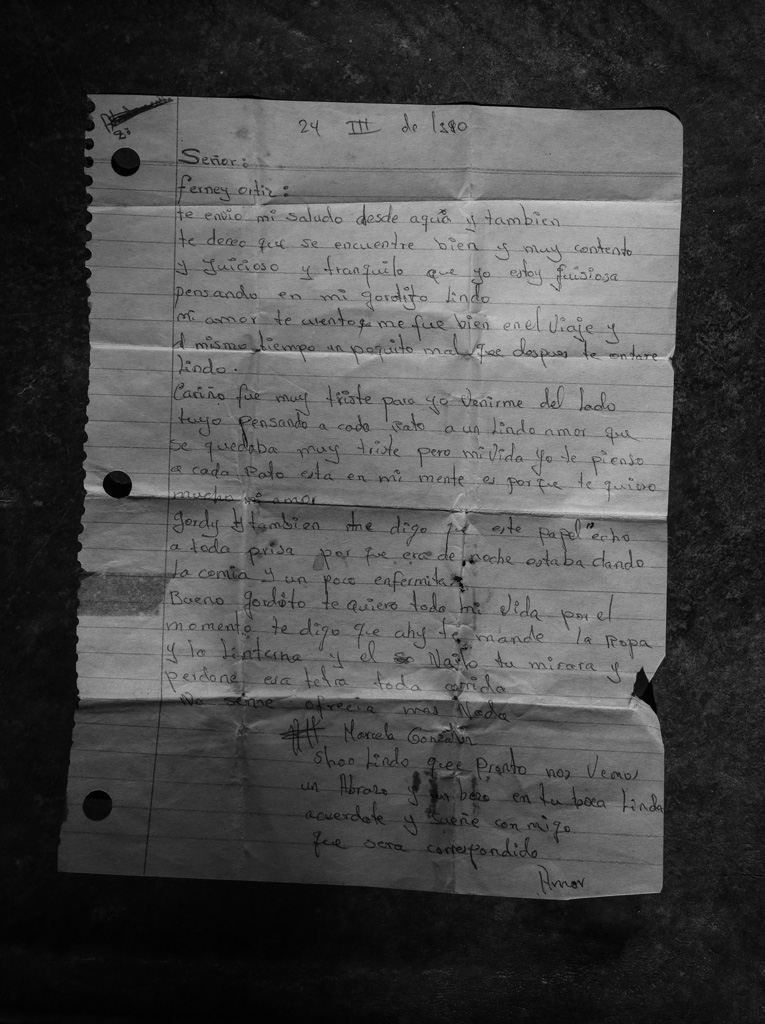 23
24 III de 1990
Señor:
ferney ortiz:
te envio mi saludo desde aquia y tambien
te deceo que se encuentre bien y muy contento
y Juicioso y tranquilo que yo estoy juisiosa
pensando en mi gordito lindo
mi amor te cuento q me fue bien en el viaje y
al mismo tiempo un poquito mal que despues te contare
Lindo.
Cariño fue muy triste para yo venirme del lado
tuyo pensando a cada rato a un Lindo amor que
se quedaba muy triste pero mi vida yo te pienso
a cada rato esta en mi mente es porque te quiero
mucho mi amor
Gordy tambien te digo que este papel echo
a toda prisa por que era de noche estaba dando
la comia y un poco enfermita
Bueno gordito te quiero toda mi vida por el
momento te digo que ahy te mande la Ropa
y la Linterna y el Nailo tu mirara y
perdone esa letra toda corrida
No senne ofrecia mas Nada
Marcela
Lindo que Pronto nos Vemos
un Abrazo y un bezo en tu boca Linda
acuerdate y sueñe con migo
que sera correspondido
Amor